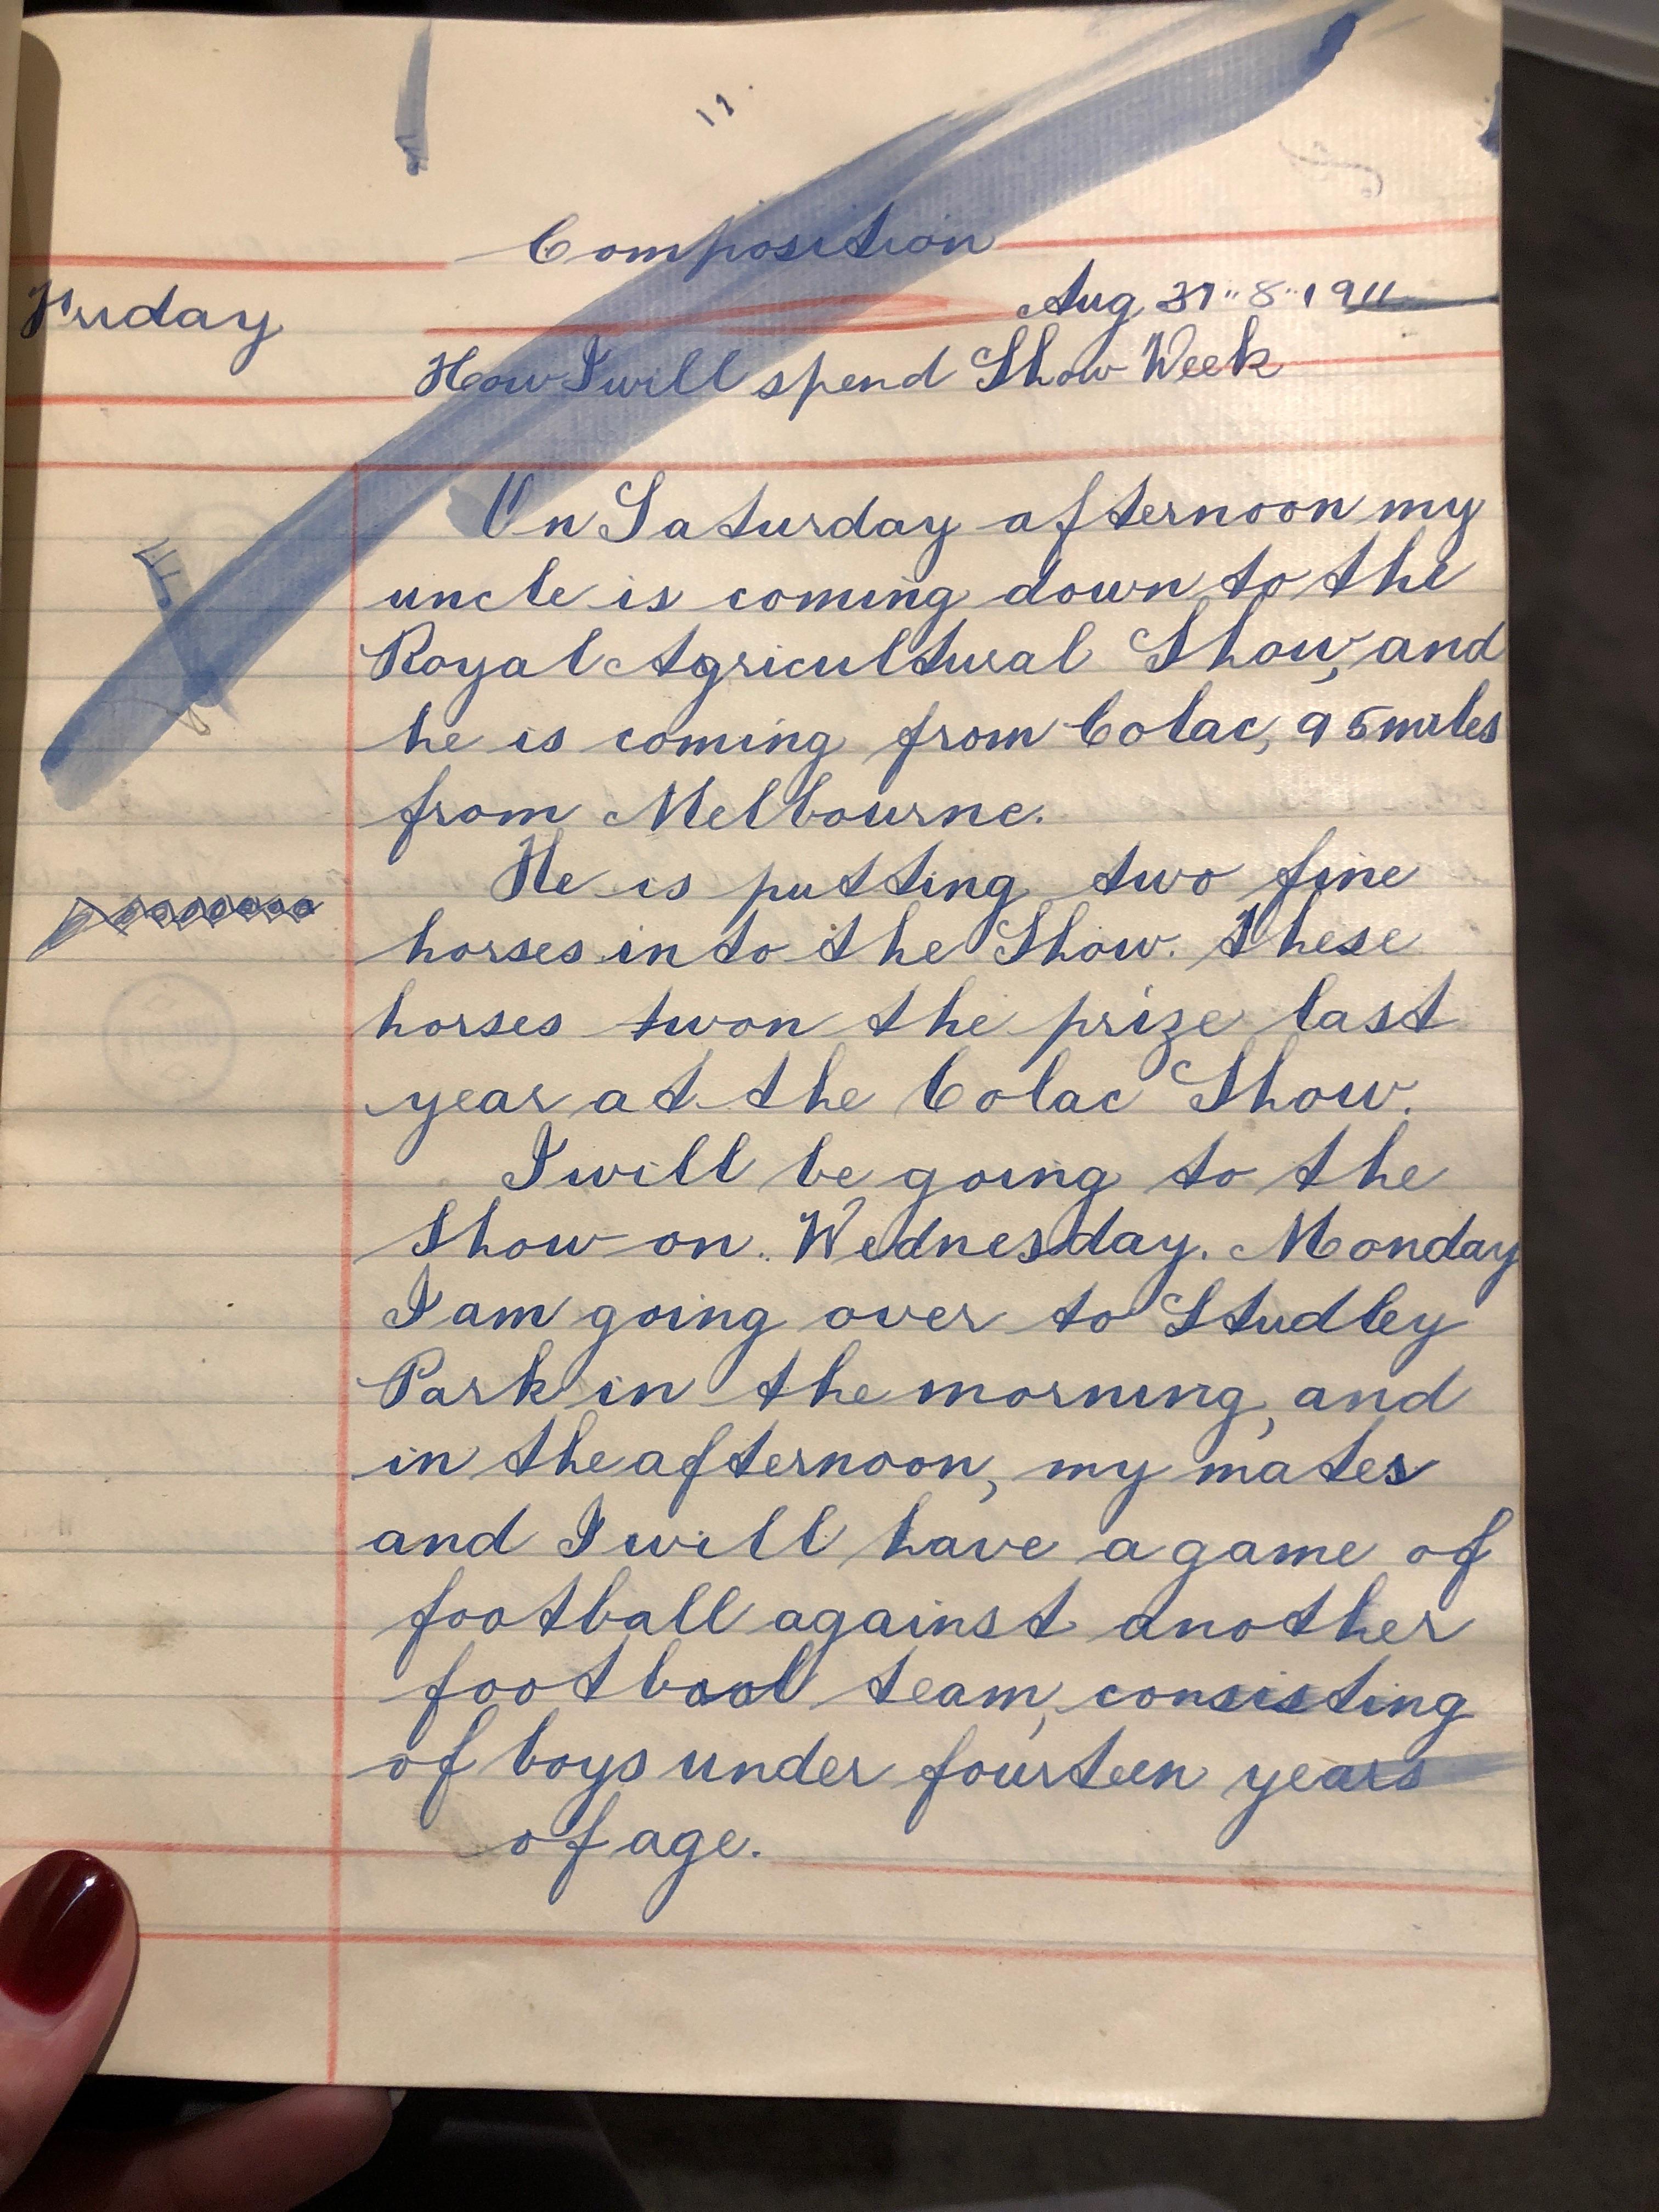 12.
Composition
Friday Aug 31..8..1911
How I will spend Show Week
On Saturday afternoon my
uncle is coming down to the
Royal Agricultural Show, and
he is coming from Colac, 95 miles
from Melbourne.
He is putting two fine
horses into the Show. These
horses won the prize last
year at the Colac Show.
I will be going to the
Show on Wednesday. Monday
I am going over to Studley
Park in the morning, and
in the afternoon, my mates
and I will have a game of
football against another
football team, consisting
of boys under fourteen years
of age.